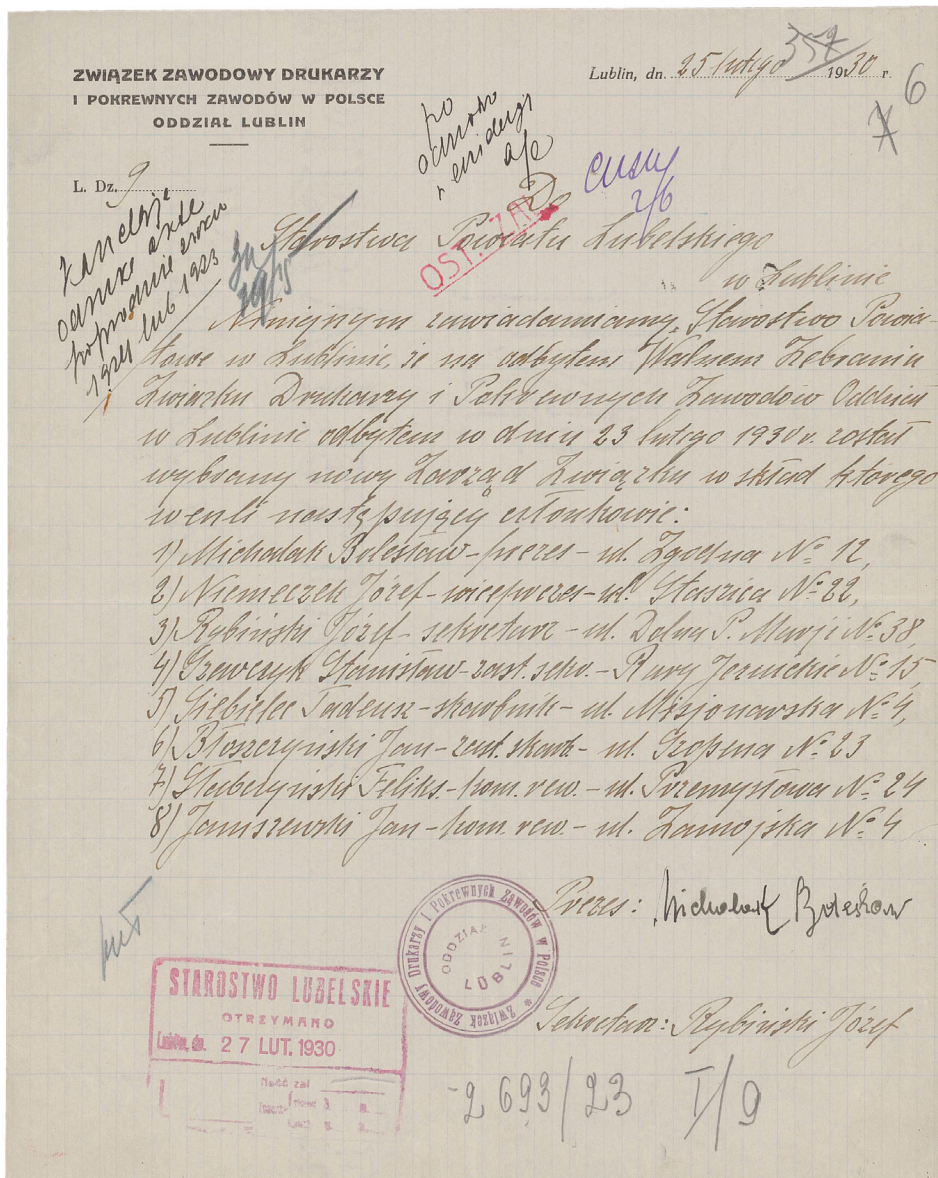 ZWIĄZEK ZAWODOWY DRUKARZY
I POKREWNYCH ZAWODÓW W POLSCE
ODDZIAŁ LUBLIN
Lublin, dn. 25 lutego 1930 r.
357
6
L. Dz. 9
po
odnoko
a/a
2/6
Do
OST. ZAŁ.
Starostwa Powiatu Lubelskiego
w Lublinie
kancelarja
odszuka akta
poprzednie z roku
1924 lub 1923
Niniejszym zawiadamiamy Starostwo Powia-
towe w Lublinie, że na odbytem Walnem Zebraniu
Związku Drukarzy i Pokrewnych Zawodów Oddział
w Lublinie odbytem w dniu 23 lutego 1930 r. został
wybrany nowy Zarząd Związku w skład którego
weszli następujący członkowie:
1) Michalak Bolesław - prezes - ul. Zgodna № 12,
2) Niemeczek Józef - wiceprezes - ul. Staszica № 22,
3) Rybiński Józef - sekretarz - ul. Dolna P. Marji № 38,
4) Szewczyk Stanisław - zast. sekr. - Rury Jezuickie № 15,
5) Siebielec Tadeusz - skarbnik - ul. Misjonarska № 4,
6) Błoszczyński Jan - zast. skarb. - ul. Szopena № 23
7) Słabczyński Feliks - kom. rew. - ul. Przemysłowa № 24
8) Januszewski Jan - kom. rew. - ul. Zamojska № 4
Prezes: Michalak Bolesław
Związek Zawodowy Drukarzy i Pokrewnych Zawodów w Polsce
ODDZIAŁ
LUBLIN
STAROSTWO LUBELSKIE
OTRZYMANO
Lublin, dn. 27 LUT. 1930
Sekretarz: Rybiński Józef
Ilość zał
2693/23 I/9